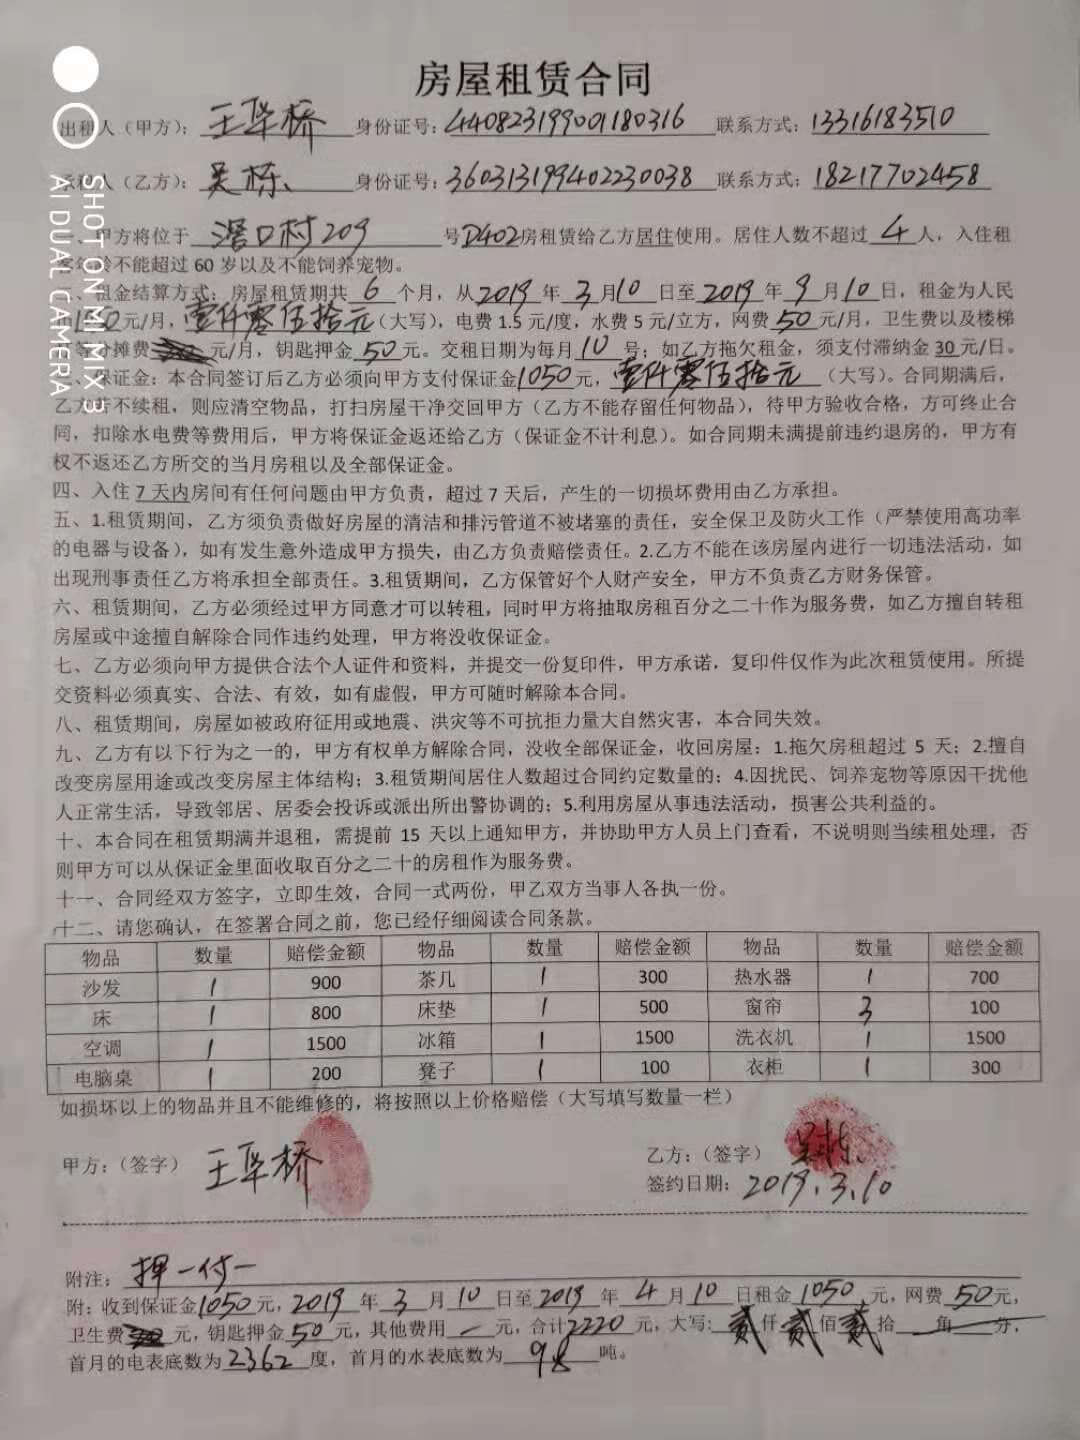 房屋租赁合同
出租人（甲方）：王华桥 身份证号：440823199001180316 联系方式：13316183510
承租人（乙方）：吴栋 身份证号：360313199402230038 联系方式：18217702458
一、甲方将位于 滘口村209 号D402房租赁给乙方居住使用。居住人数不超过 4 人，入住租
客年龄不能超过 60 岁以及不能饲养宠物。
二、租金结算方式：房屋租赁期共 6 个月，从2019 年 3 月10 日至 2019 年 9 月 10 日，租金为人民
币1050元/月，壹仟零伍拾元（大写），电费 1.5 元/度，水费 5 元/立方，网费 50 元/月，卫生费以及楼梯
灯等分摊费 元/月，钥匙押金 50 元。交租日期为每月 10 号；如乙方拖欠租金，须支付滞纳金 30 元/日。
三、保证金：本合同签订后乙方必须向甲方支付保证金1050元，壹仟零伍拾元（大写）。合同期满后，
乙方若不续租，则应清空物品，打扫房屋干净交回甲方（乙方不能存留任何物品），待甲方验收合格，方可终止合
同，扣除水电费等费用后，甲方将保证金返还给乙方（保证金不计利息）。如合同期未满提前违约退房的，甲方有
权不返还乙方所交的当月房租以及全部保证金。
四、入住 7 天内房间有任何问题由甲方负责，超过 7 天后，产生的一切损坏费用由乙方承担。
五、1.租赁期间，乙方须负责做好房屋的清洁和排污管道不被堵塞的责任，安全保卫及防火工作（严禁使用高功率
的电器与设备），如有发生意外造成甲方损失，由乙方负责赔偿责任。2.乙方不能在该房屋内进行一切违法活动，如
出现刑事责任乙方将承担全部责任。3.租赁期间，乙方保管好个人财产安全，甲方不负责乙方财务保管。
六、租赁期间，乙方必须经过甲方同意才可以转租，同时甲方将抽取房租百分之二十作为服务费，如乙方擅自转租
房屋或中途擅自解除合同作违约处理，甲方将没收保证金。
七、乙方必须向甲方提供合法个人证件和资料，并提交一份复印件，甲方承诺，复印件仅作为此次租赁使用。所提
交资料必须真实、合法、有效，如有虚假，甲方可随时解除本合同。
八、租赁期间，房屋如被政府征用或地震、洪灾等不可抗拒力量大自然灾害，本合同失效。
九、乙方有以下行为之一的，甲方有权单方解除合同，没收全部保证金，收回房屋：1.拖欠房租超过 5 天；2.擅自
改变房屋用途或改变房屋主体结构；3.租赁期间居住人数超过合同约定数量的；4.因扰民、饲养宠物等原因干扰他
人正常生活，导致邻居、居委会投诉或派出所出警协调的；5.利用房屋从事违法活动，损害公共利益的。
十、本合同在租赁期满并退租，需提前 15 天以上通知甲方，并协助甲方人员上门查看，不说明则当续租处理，否
则甲方可以从保证金里面收取百分之二十的房租作为服务费。
十一、合同经双方签字，立即生效，合同一式两份，甲乙双方当事人各执一份。
十二、请您确认，在签署合同之前，您已经仔细阅读合同条款。
物品 数量 赔偿金额 物品 数量 赔偿金额 物品 数量 赔偿金额
沙发 1 900 茶几 1 300 热水器 1 700
床 1 800 床垫 1 500 窗帘 3 100
空调 1 1500 冰箱 1 1500 洗衣机 1 1500
电脑桌 1 200 凳子 1 100 衣柜 1 300
如损坏以上的物品并且不能维修的，将按照以上价格赔偿（大写填写数量一栏）
甲方：（签字） 王华桥 乙方：（签字） 吴栋
签约日期：2019.3.10
附注：押一付一
附：收到保证金1050元，2019 年 3 月 10 日至 2019 年 4 月 10 日租金 1050 元，网费 50元，
卫生费 元，钥匙押金 50 元，其他费用 一 元，合计2220 元，大写：贰 仟 贰 佰 贰 拾 角 分，
首月的电表底数为 2362 度，首月的水表底数为 98 吨。
SHOT ON MI MIX 3
AI DUAL CAMERA